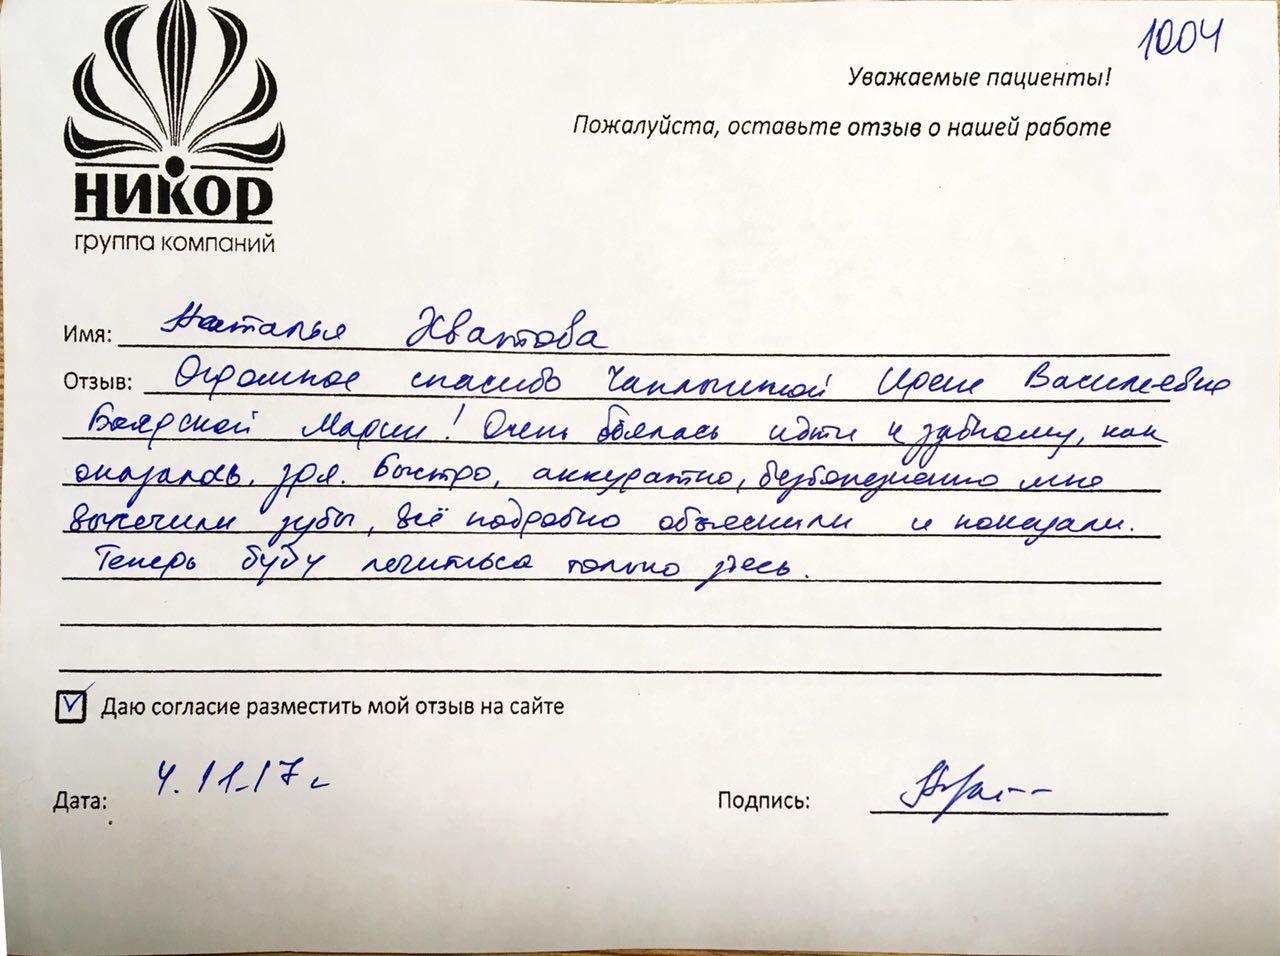 1004
Уважаемые пациенты!
Пожалуйста, оставьте отзыв о нашей работе
НИКОР
группа компаний
Имя: Наталья Хватова
Отзыв: Огромное спасибо Чаплыгиной Ирине Васильевне
Боярской Марии! Очень боялась идти к зубному, как
оказалось, зря. Быстро, аккуратно, безболезненно мне
вылечили зубы, всё подробно объяснили и показали.
Теперь буду лечиться только здесь.
Даю согласие разместить мой отзыв на сайте
Дата: 4.11.17г
Подпись: